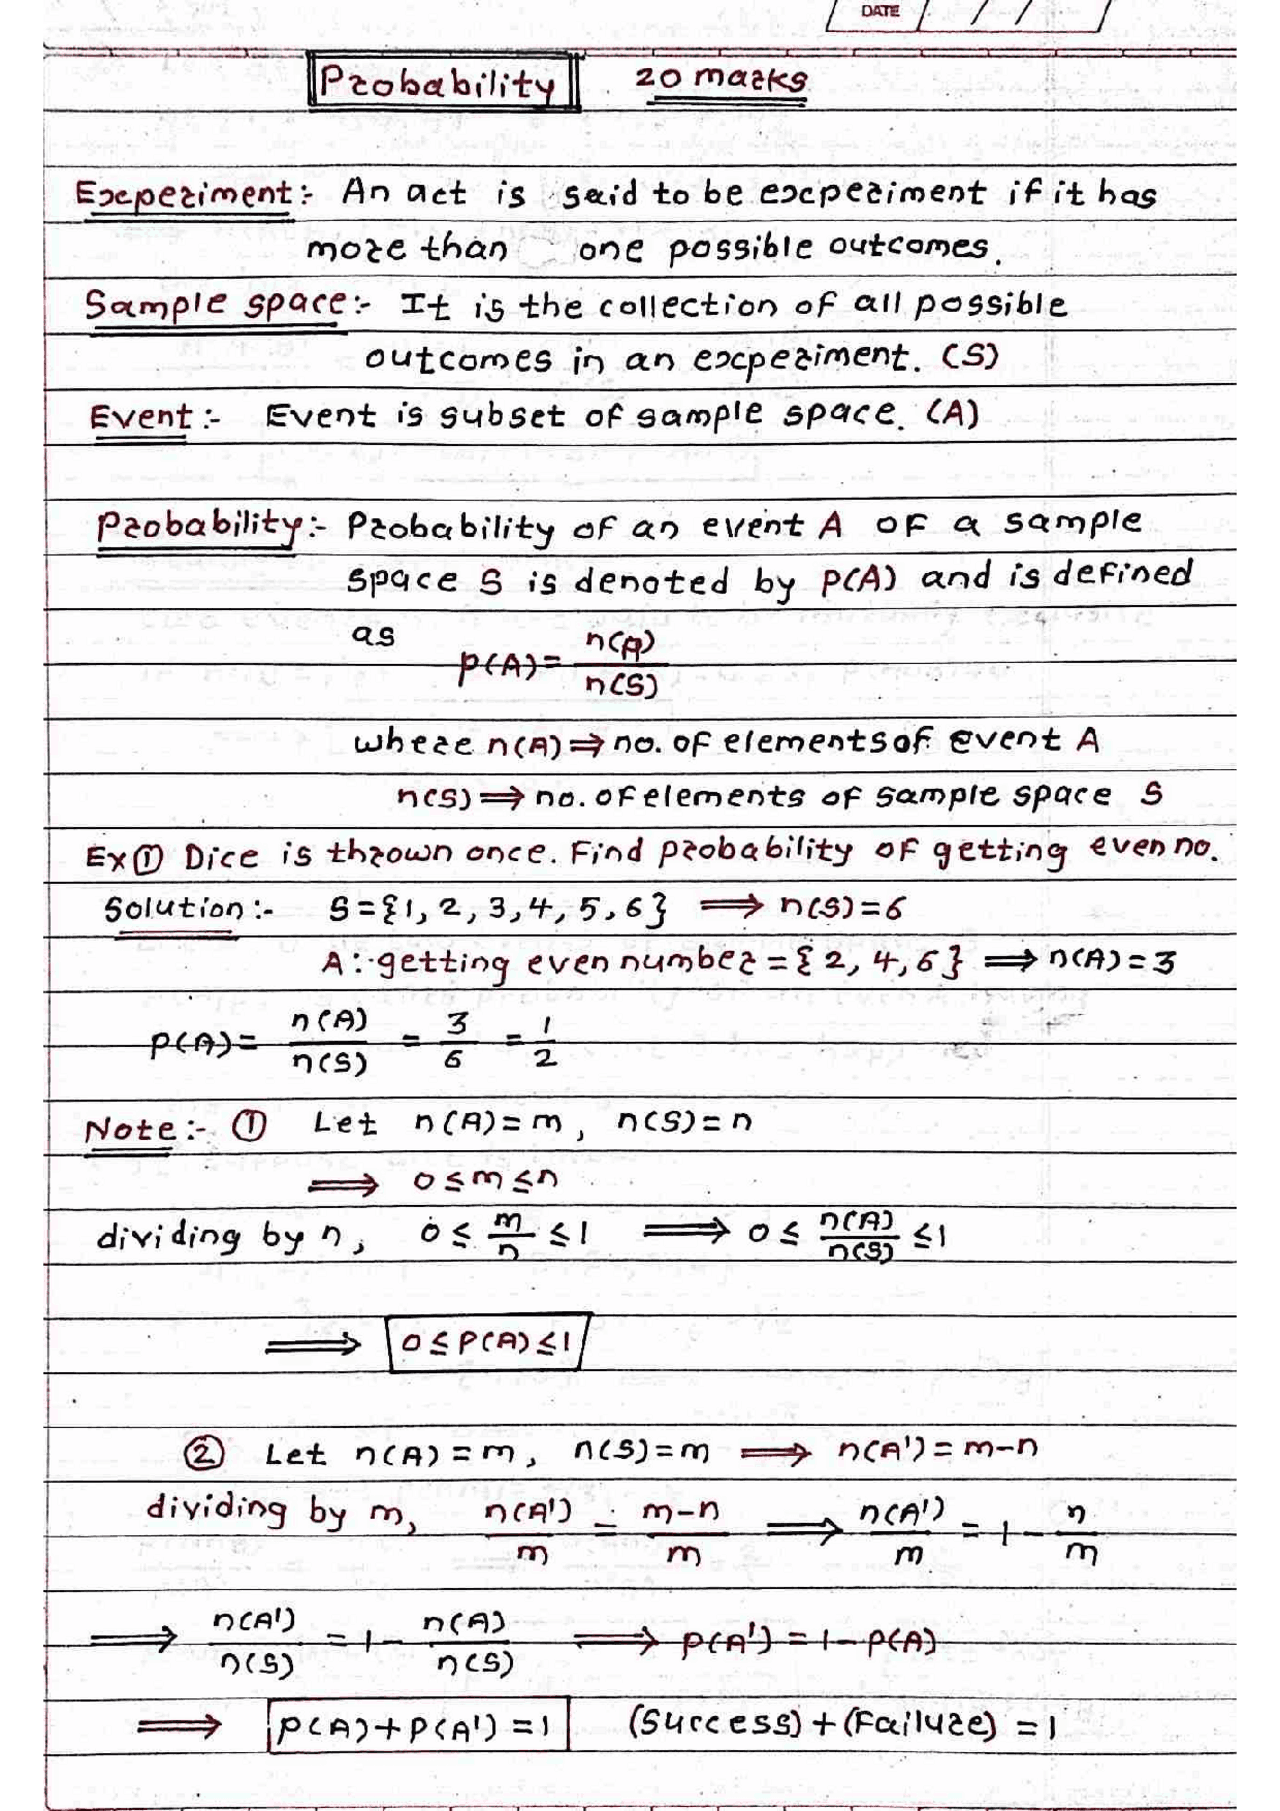 DATE / /
Probability 20 marks
Experiment:- An act is said to be experiment if it has
more than one possible outcomes.
Sample space:- It is the collection of all possible
outcomes in an experiment. (S)
Event:- Event is subset of sample space. (A)
Probability:- Probability of an event A of a sample
space S is denoted by P(A) and is defined
as P(A) = n(A)/n(S)
where n(A) ⇒ no. of elements of event A
n(S) ⇒ no. of elements of sample space S
Ex ① Dice is thrown once. Find probability of getting even no.
Solution:- S = {1, 2, 3, 4, 5, 6} ⟹ n(S) = 6
A: getting even number = {2, 4, 6} ⟹ n(A) = 3
P(A) = n(A)/n(S) = 3/6 = 1/2
Note:- ① Let n(A) = m, n(S) = n
⟹ 0 ≤ m ≤ n
dividing by n, 0 ≤ m/n ≤ 1 ⟹ 0 ≤ n(A)/n(S) ≤ 1
⟹ 0 ≤ P(A) ≤ 1
② Let n(A) = m, n(S) = m ⟹ n(A') = m-n
dividing by m, n(A')/m = m-n/m ⟹ n(A')/m = 1 - n/m
⟹ n(A')/n(S) = 1 - n(A)/n(S) ⟹ P(A') = 1 - P(A)
⟹ P(A) + P(A') = 1 (Success) + (Failure) = 1